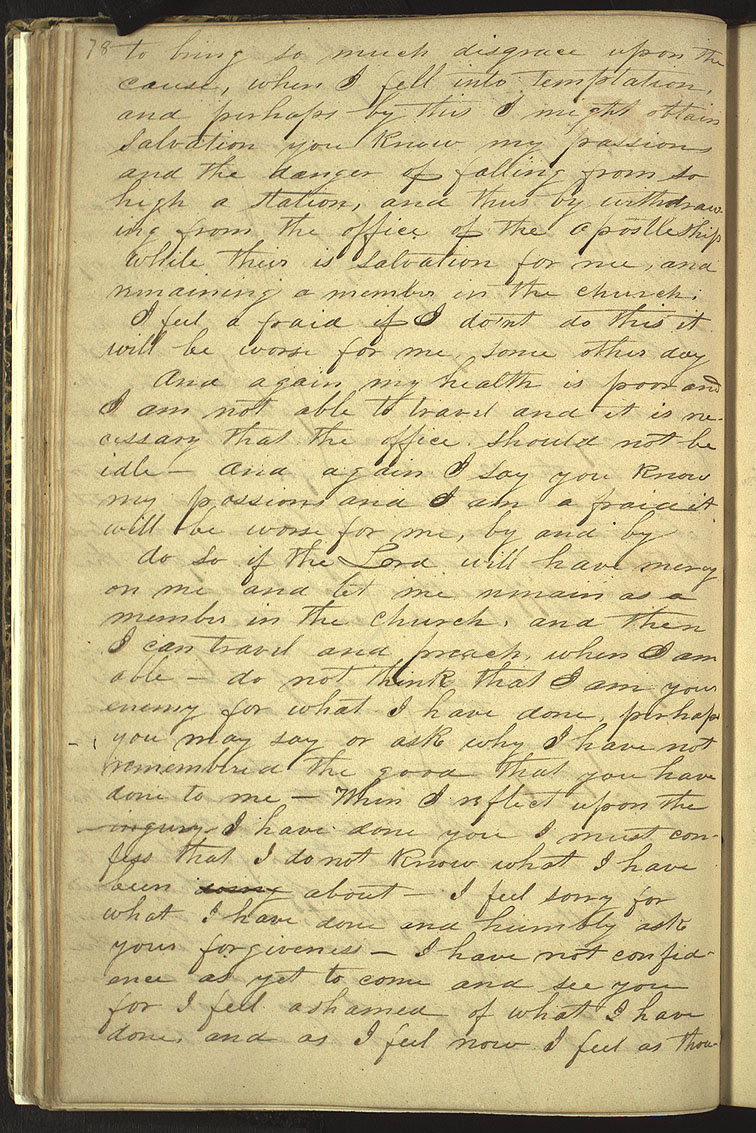 78 to bring so much disgrace upon the
cause, when I fell into temptation,
and perhaps by this I might obtain
salvation you know my passions
and the danger of falling from so
high a station, and thus by withdraw-
ing from the office of the apostleship
while their is salvation for me, and
remaining a member in the church.
I feel a fraid if I do'nt do this it
will be worse for me, some other day
And again my health is poor and
I am not able to travel and it is ne-
cessary that the office should not be
idle - And again I say you know
my passions and I am a fraid it
will be worse for me, by and by
do so if the Lord will have mercy
on me and let me remain as a
member in the church, and then
I can travel and preach, when I am
able - do not think that I am your
enemy for what I have done, perhaps
you may say or ask why I have not
remembered the good that you have
done to me - When I reflect upon the
ingury I have done you I must con-
fess that I do not know what I have
been doing about - I feel sorry for
what I have done and humbly ask
your forgiveness - I have not confid-
ence as yet to come and see you
for I feel ashamed of what I have
done, and as I feel now I feel as thou-